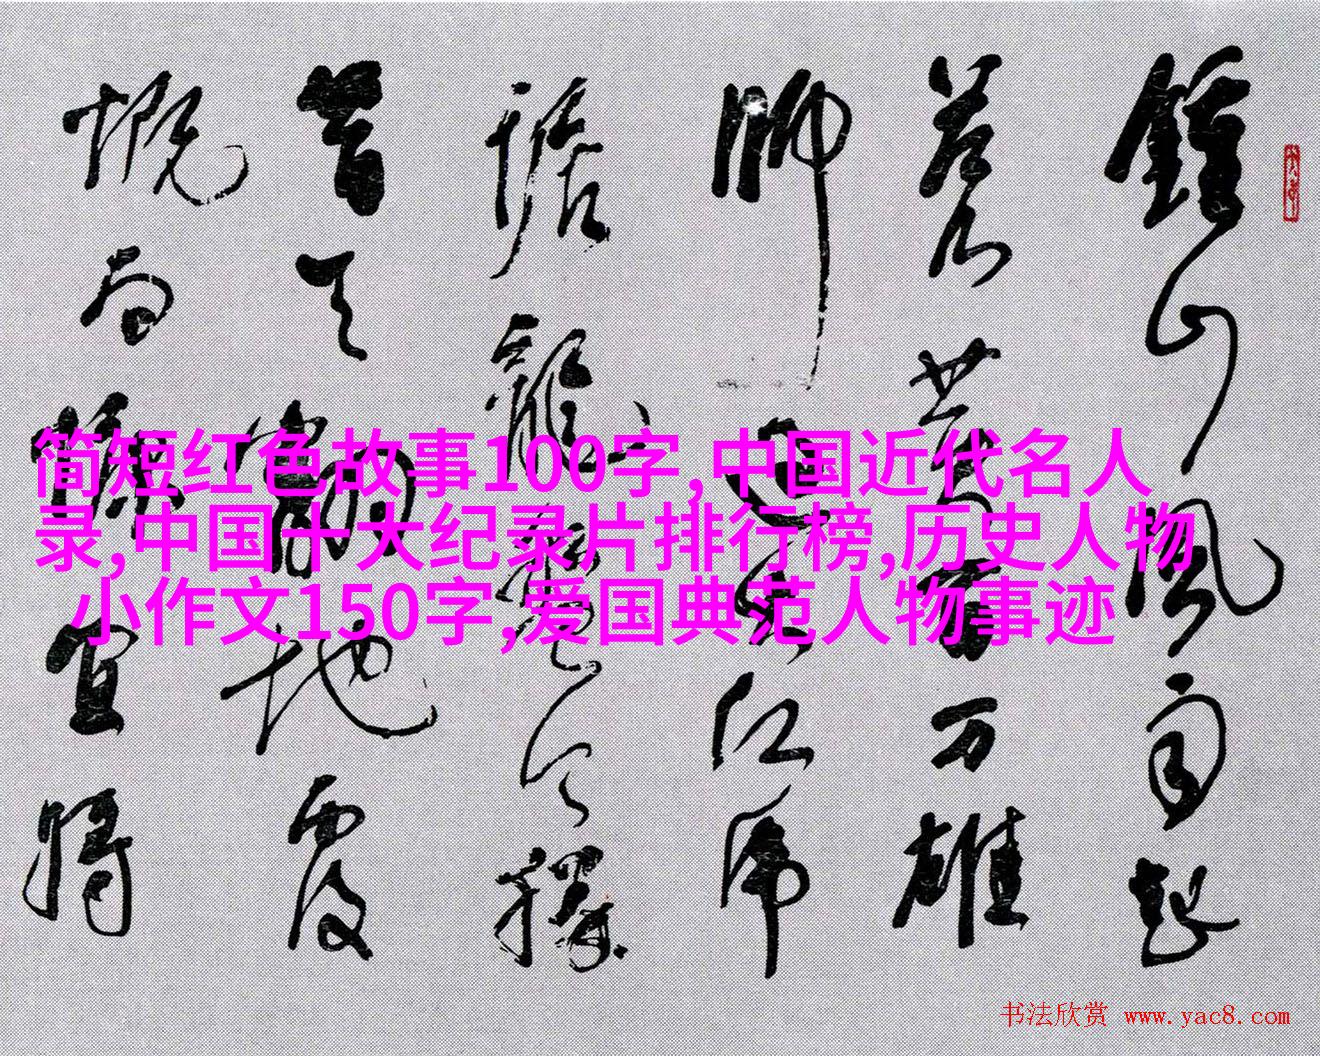 鍾山風雨起
蒼黃百万雄
師過大江虎
踞龍盤今勝
昔天翻地覆
慨而慷宜將
简短红色故事100字,中国近代名人
录,中国十大纪录片排行榜,历史人物
小作文150字,爱国典范人物事迹
书法欣赏 www.yac8.com